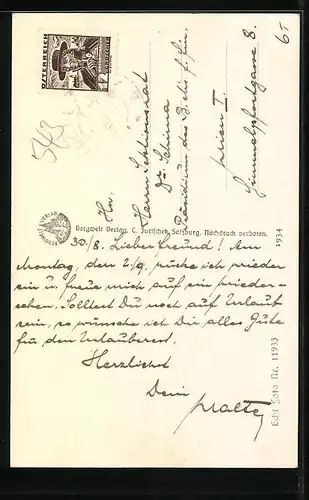 ÖSTERREICH
12
6.-
543
Hn.
Herrn Sektionsrat
Dr.
Präsidium des
Wien I.
Himmelpfortgasse 8.
Bergwelt Verlag, C. Jurischek, Salzburg. Nachdruck verboten.
1934
30/8. Lieber Freund! Am
Montag, den 2./9. rücke ich wieder
ein u. freue mich auf ein Wieder-
sehen. Solltest Du noch auf Urlaub
sein, so wünsche ich Dir alles Gute
für den Urlaubsrest.
Herzlichst
Dein
Echt Foto Nr. 11933